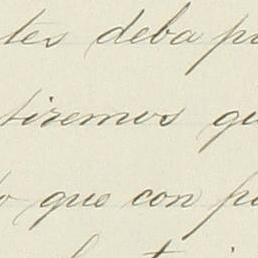 tes deba p
tiremos qu
o que con p